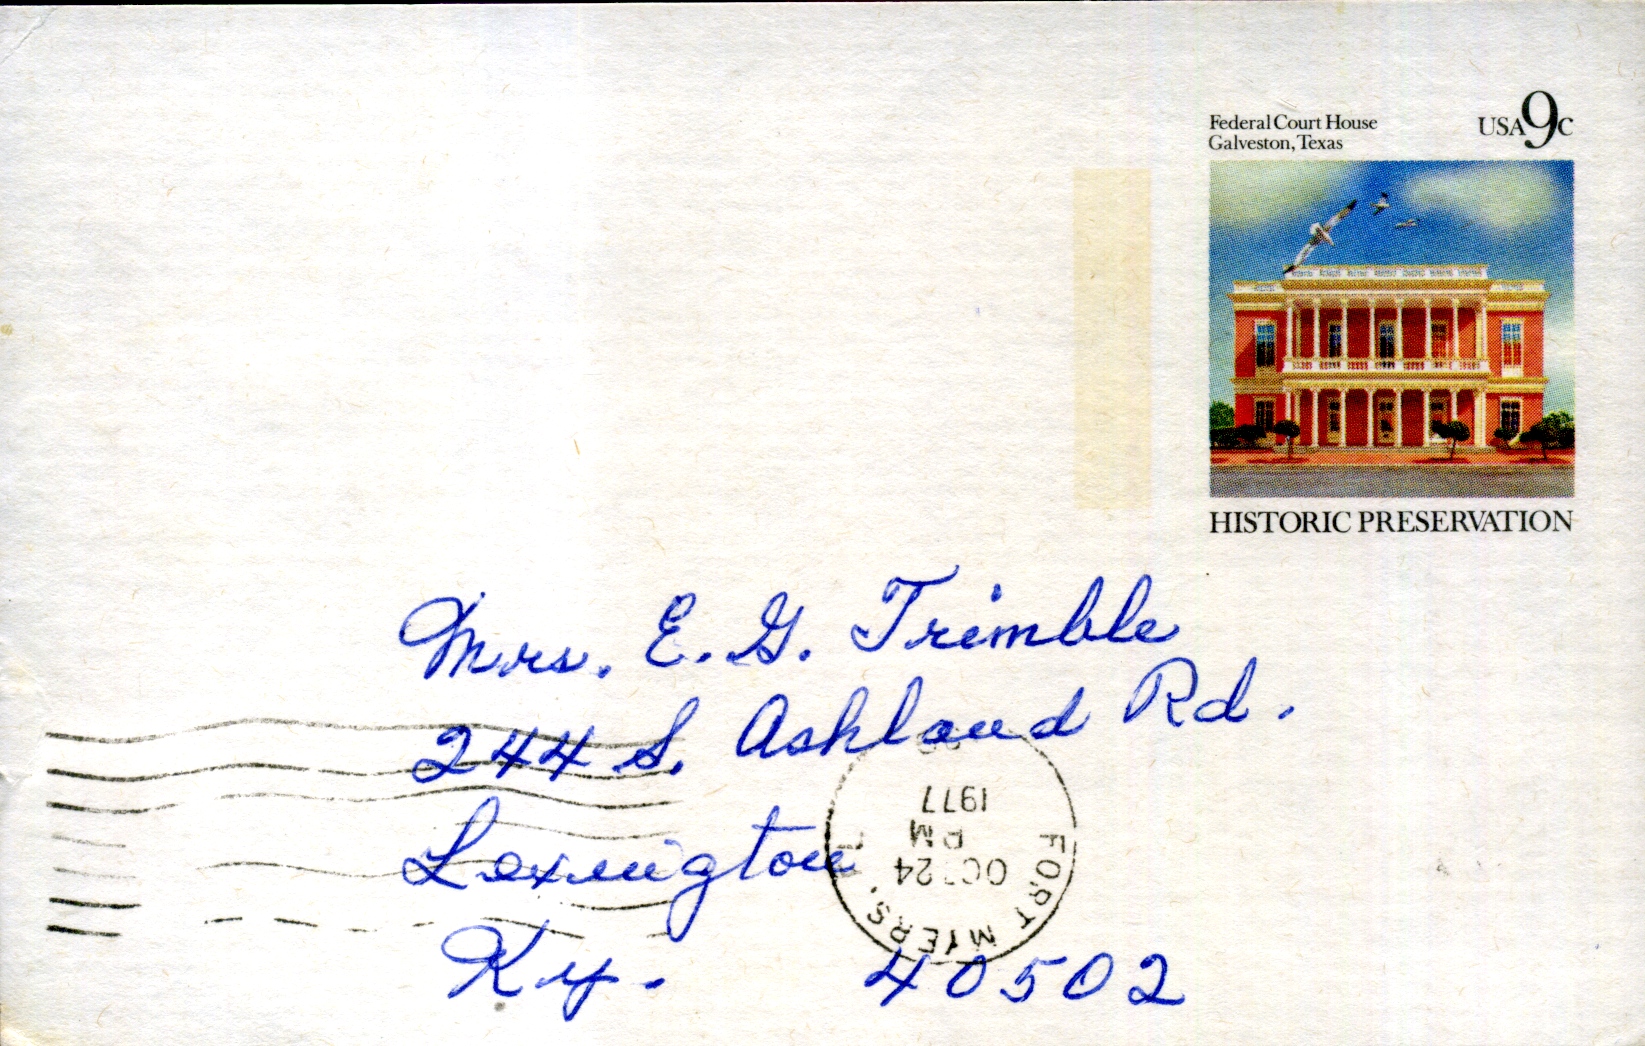 Federal Court House
Galveston, Texas
USA 9c
HISTORIC PRESERVATION
Mrs. E. G. Trimble
244 S. Ashland Rd.
Lexington
Ky. 40502
FORT MYERS.
OCT 24
PM
1977